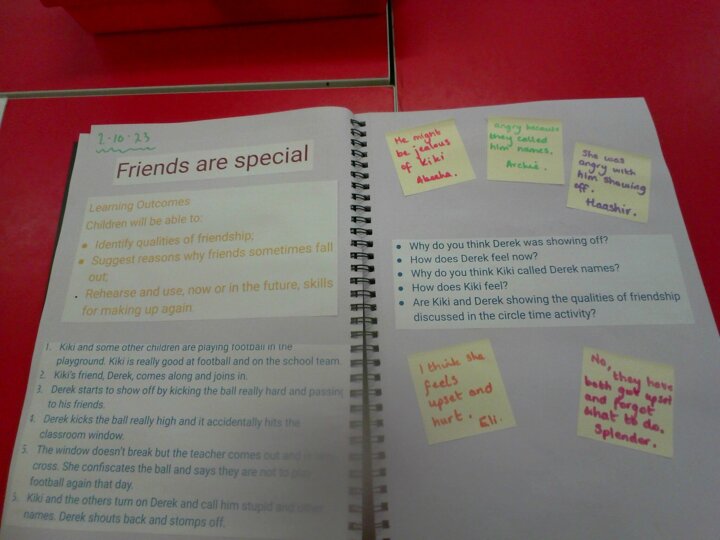 2-10-23
Friends are special
Learning Outcomes
Children will be able to:
• Identify qualities of friendship;
• Suggest reasons why friends sometimes fall
out;
• Rehearse and use, now or in the future, skills
for making up again.
1. Kiki and some other children are playing football in the
playground. Kiki is really good at football and on the school team.
2. Kiki's friend, Derek, comes along and joins in.
3. Derek starts to show off by kicking the ball really hard and passing
to his friends.
4. Derek kicks the ball really high and it accidentally hits the
classroom window.
5. The window doesn't break but the teacher comes out and is
cross. She confiscates the ball and says they are not to play
football again that day.
6. Kiki and the others turn on Derek and call him stupid and other
names. Derek shouts back and stomps off.
He might
be jealous
of Kiki
angry because
they called
him names.
Archie.
She was
angry with
him showing
off.
Haashir.
• Why do you think Derek was showing off?
• How does Derek feel now?
• Why do you think Kiki called Derek names?
• How does Kiki feel?
• Are Kiki and Derek showing the qualities of friendship
discussed in the circle time activity?
I think she
feels
upset and
hurt. Eli.
No, they have
both got upset
and forgot
what to do.
Splendor.